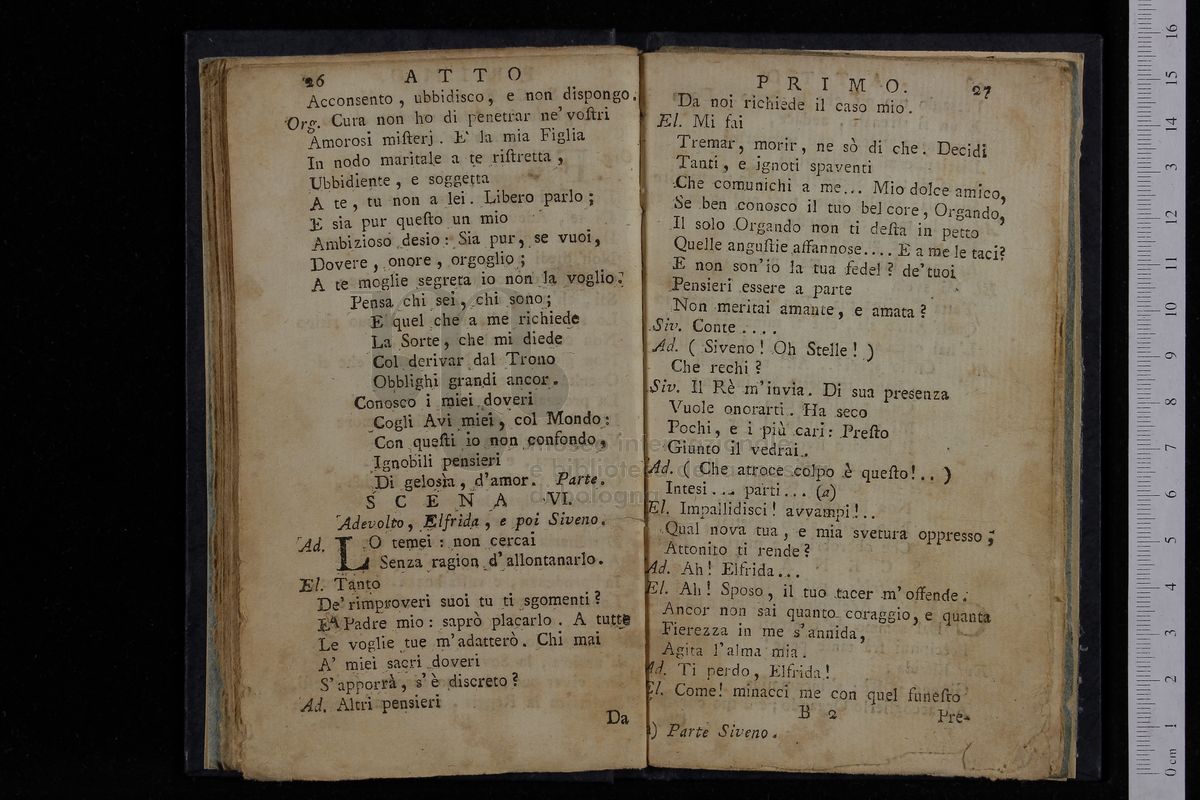 26 ATTO
Acconsento, ubbidisco, e non dispongo.
Org. Cura non ho di penetrar ne' voſtri
Amorosi miſterj. E' la mia Figlia
In nodo maritale a te riſtretta,
Ubbidiente, e soggetta
A te, tu non a lei. Libero parlo;
E sia pur queſto un mio
Ambizioso desio: Sia pur, se vuoi,
Dovere, onore, orgoglio;
A te moglie segreta io non la voglio.
Pensa chi sei, chi sono;
E quel che a me richiede
La Sorte, che mi diede
Col derivar dal Trono
Obblighi grandi ancor.
Conosco i miei doveri
Cogli Avi miei, col Mondo:
Con queſti io non confondo,
Ignobili pensieri
Di gelosìa, d'amor. Parte.
SCENA VI.
Adevolto, Elfrida, e poi Siveno.
Ad. LO temei: non cercai
Senza ragion d'allontanarlo.
El. Tanto
De' rimproveri suoi tu ti sgomenti?
E' Padre mio: saprò placarlo. A tutte
Le voglie tue m'adatterò. Chi mai
A' miei sacri doveri
S'apporrà, s'è discreto?
Ad. Altri pensieri
Da
PRIMO. 27
Da noi richiede il caso mio.
El. Mi fai
Tremar, morir, ne sò di che. Decidi
Tanti, e ignoti spaventi
Che comunichi a me... Mio dolce amico,
Se ben conosco il tuo bel core, Orgando,
Il solo Orgando non ti deſta in petto
Quelle anguſtie affannose.... E a me le taci?
E non son'io la tua fedel? de' tuoi
Pensieri essere a parte
Non meritai amante, e amata?
Siv. Conte....
Ad. (Siveno! Oh Stelle!)
Che rechi?
Siv. Il Rè m'invia. Di sua presenza
Vuole onorarti. Ha seco
Pochi, e i più cari: Preſto
Giunto il vedrai.
Ad. (Che atroce colpo è queſto!..)
Intesi... parti... (a)
El. Impallidisci! avvampi!..
Qual nova tua, e mia svetura oppresso,
Attonito ti rende?
Ad. Ah! Elfrida...
El. Ah! Sposo, il tuo tacer m'offende.
Ancor non sai quanto coraggio, e quanta
Fierezza in me s'annida,
Agita l'alma mia.
Ad. Ti perdo, Elfrida!
El. Come! minacci me con quel funeſto
B 2 Pre-
a) Parte Siveno.